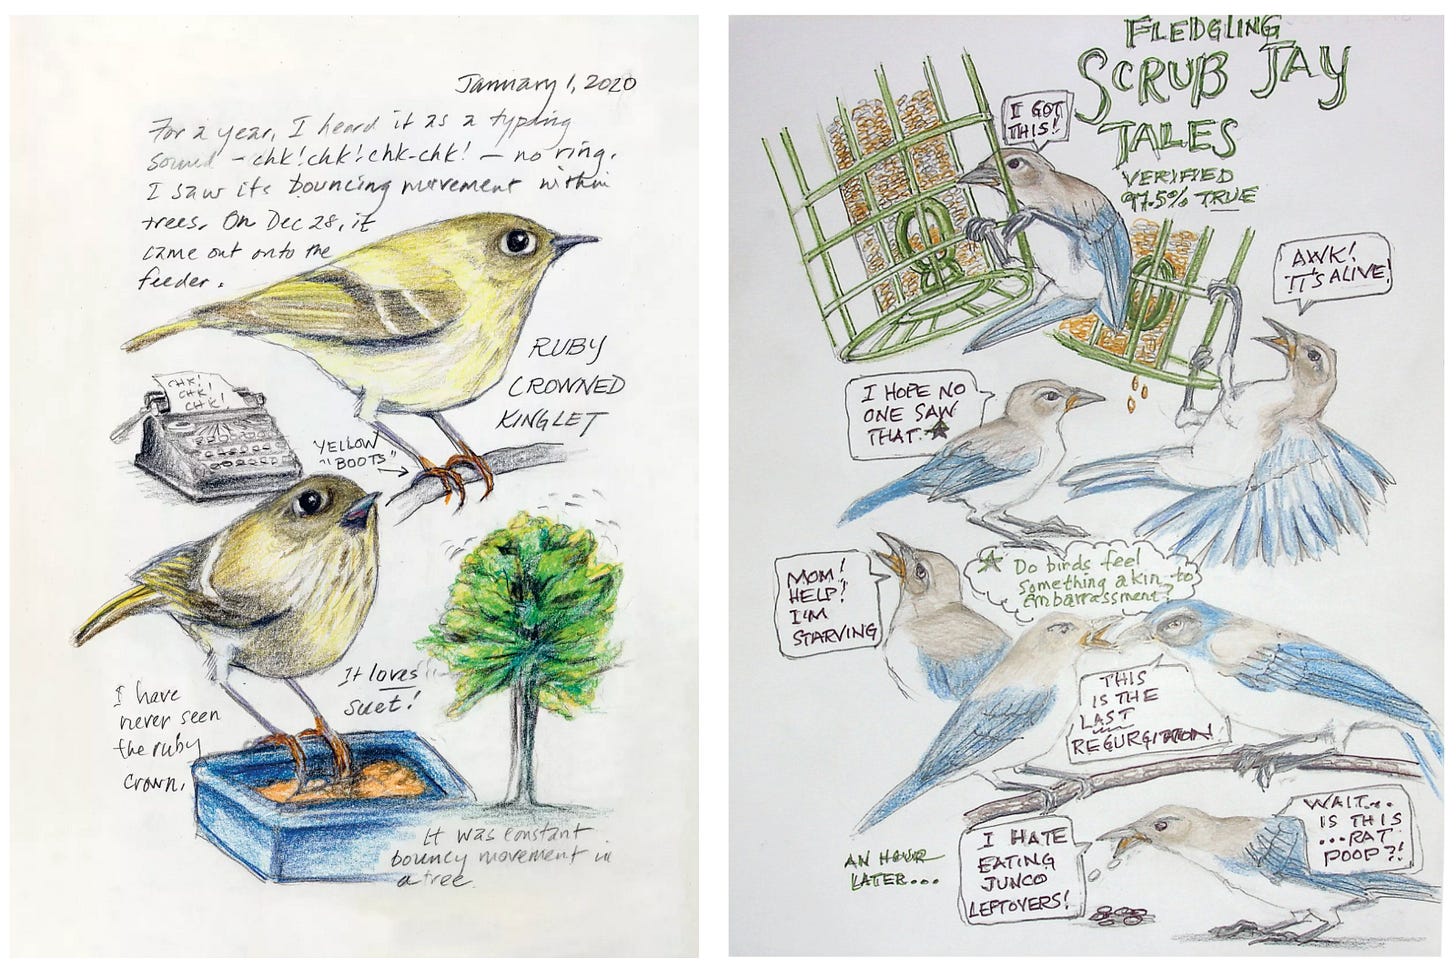 January 1, 2020
For a year, I heard it as a typing
sound – chk! chk! chk-chk! – no ring.
I saw its bouncing movement within
trees. On Dec 28, it
came out onto the
feeder.
RUBY
CROWNED
KINGLET
CHK!
CHK!
CHK!
YELLOW
"BOOTS"
It loves
suet!
I have
never seen
the ruby
crown.
It was constant
bouncy movement in
a tree.
FLEDGLING
SCRUB JAY
TALES
VERIFIED
97.5% TRUE
I GOT
THIS!
AWK!
IT'S ALIVE!
I HOPE NO
ONE SAW
THAT.★
MOM!
HELP!
I'M
STARVING
★ Do birds feel
something akin to
embarrassment?
THIS
IS THE
LAST
REGURGITATION!
AN HOUR
LATER...
I HATE
EATING
JUNCO
LEFTOVERS!
WAIT...
IS THIS
...RAT
POOP?!